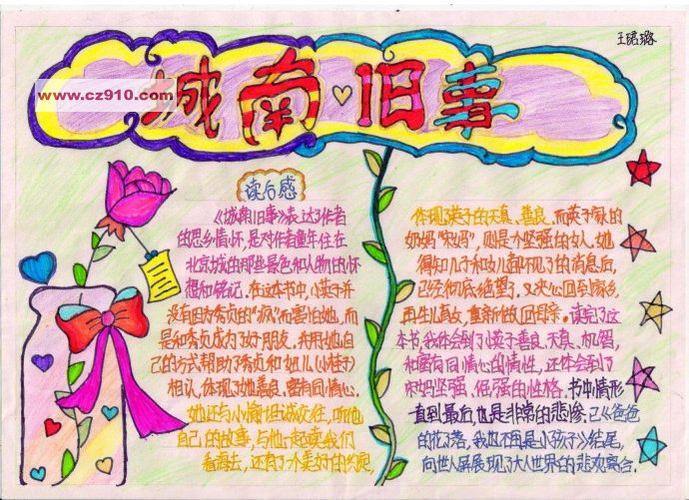 王珺璐
www.cz910.com
城南旧事
读后感
《城南旧事》表达了作者
的思乡情怀,是对作者童年住在
北京城的那些景色和人物的怀
想和铭记。在这本书中,小英子并
没有因为秀贞的“疯”而害怕她,而
是和秀贞成为了好朋友,并用她自
己的方式帮助了秀贞和妞儿(小桂子)
相认,体现了她善良、富有同情心。
她还与小偷坦诚交往,听他
自己的故事,与他一起读我们
看海去,还有了个美好的约定,
体现英子的天真、善良。而英子家的
奶妈“宋妈”,则是个坚强的女人,她
得知儿子和女儿都不见了的消息后,
已经彻底绝望了,又决心回到家乡,
再生儿育女,重新做回母亲。读完了这
本书,我体会到了小英子善良、天真、机智、
和富有同情心的情性,还体会到了
宋妈坚强、倔强的性格。书中情形
直到最后,也是非常的悲惨,已《爸爸
的花落了,我也不再是小孩子》结尾,
向世人展现了大人世界的悲欢离合。